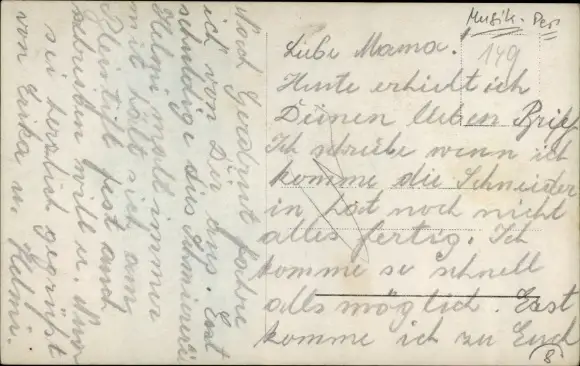 Musik. Per.
149
Liebe Mama.
Heute erhielt ich
Deinen lieben Brief
Ich schreibe wenn ich
komme die Schneider
in hat noch nicht
alles fertig. Ich
komme so schnell
alls möglich. Erst
komme ich zu Euch
8
Noch Gerdrut fahre
ich von Dir aus. Ent
schuldige dies Schmiererei
Helmi malt immer
mit hält sich am
Bleistift fest auch
schreiben will u. Nun
sei herzlich gegrüßt
von Erika u. Helmi.